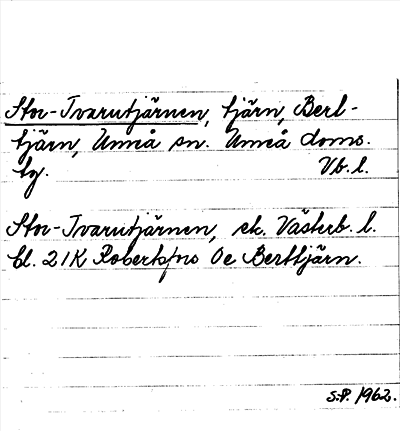 Stor-Tvarutjärnen, tjärn, Bert-
tjärn, Umeå sn. Umeå doms.
tg. Vb. l.
Stor-Tvarutjärnen, ek. Västerb. l.
bl. 21K Robertsfors Öe Berttjärn.
S.P. 1962.